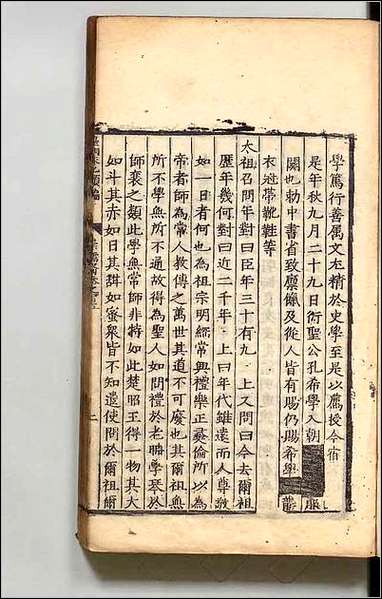 學篤行善属文尤精於史學至是以薦授今官
是年秋九月二十九日衍聖公孔希學入朝 服
闕也勅中書省致廪餼及從人皆有賜仍賜希學 襲
衣冠帶靴鞋等
太祖召問年對曰臣年三十有九 上又問曰今去爾祖
歷年幾何對曰近二千年 上曰年代雖遠而人尊敬
如一日者何也為祖宗明綱常興禮樂正彝倫所以為
帝者師為常人教傳之萬世其道不可廢也其爾祖無
所不學無所不通故得為聖人如問禮於老聃學琴於
師襄之類此學無常師非特如此楚昭王得一物其大
如斗其赤如日其甜如蜜衆皆不知遣使問於爾祖爾
二